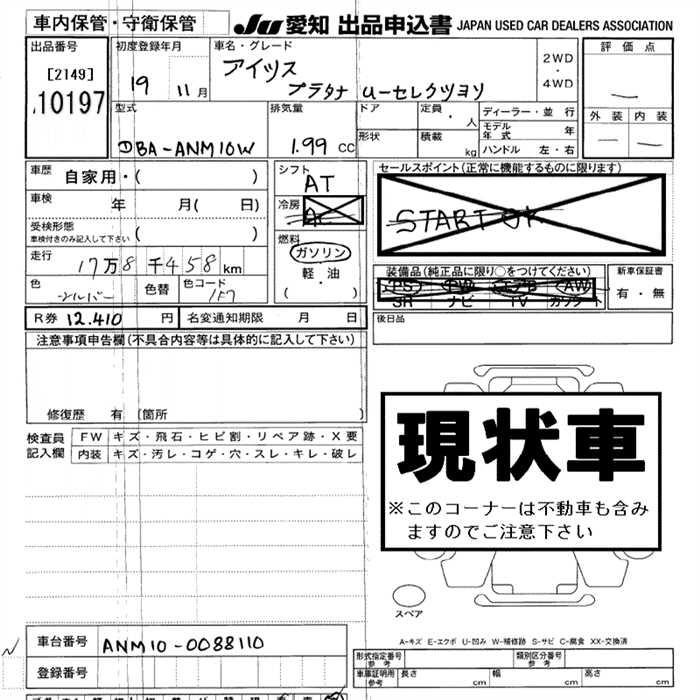 車内保管・守衛保管 JU 愛知 出品申込書 JAPAN USED CAR DEALERS ASSOCIATION
出品番号 初度登録年月 車名・グレード 評価点
[2149] 19 11月 アイシス 2WD・4WD
10197 プラタナ U-セレクション
型式 排気量 ドア 定員 ・人 ディーラー・並行 外装 内装
DBA-ANM10W 1.99 CC 形状 積載 kg モデル年式 年
ハンドル 左・右
車歴 自家用・( ) シフト AT セールスポイント(正常に機能するものに限ります)
車検 年 月( 日) 冷房 AC START OK
受検形態 ( )
車検付きのみ記入して下さい
燃料 ガソリン
走行 17万8千458km 軽・油
( )
装備品(純正品に限り○をつけてください) 新車保証書
色 シルバー 色替 色コード 1F7 PS PW エアB AW 有・無
SR ナビ TV カワシート
R券 12.410 円 名変通知期限 月 日 後日品
注意事項申告欄(不具合内容等は具体的に記入して下さい)
修復歴 有 (箇所 )
検査員記入欄 FW キズ・飛石・ヒビ割・リペア跡・X要
内装 キズ・汚レ・コゲ・穴・スレ・キレ・破レ
現状車
※このコーナーは不動車も含み
ますのでご注意下さい
スペア
A-キズ E-エクボ U-凹み W-補修跡 S-サビ C-腐食 XX-交換済
車台番号 ANM10-0088110
登録番号
形式指定番号 参考 類別区分番号 参考
車庫証明用 参考 長さ cm 幅 cm 高さ cm